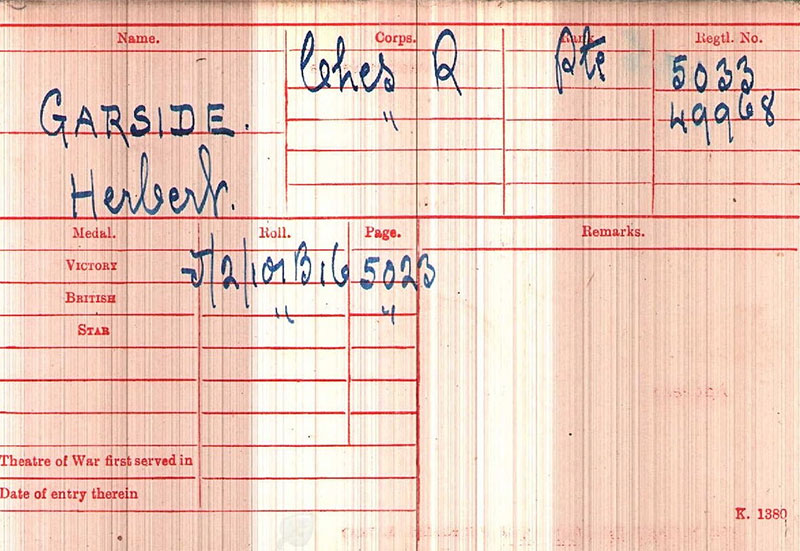 Name. Corps. Rank. Regtl. No.
Ches R Pte 5033
" 49968
GARSIDE.
Herbert.
Medal. Roll. Page. Remarks.
VICTORY J/2/101B16 5023
BRITISH " "
STAR
Theatre of War first served in
Date of entry therein
K. 1380